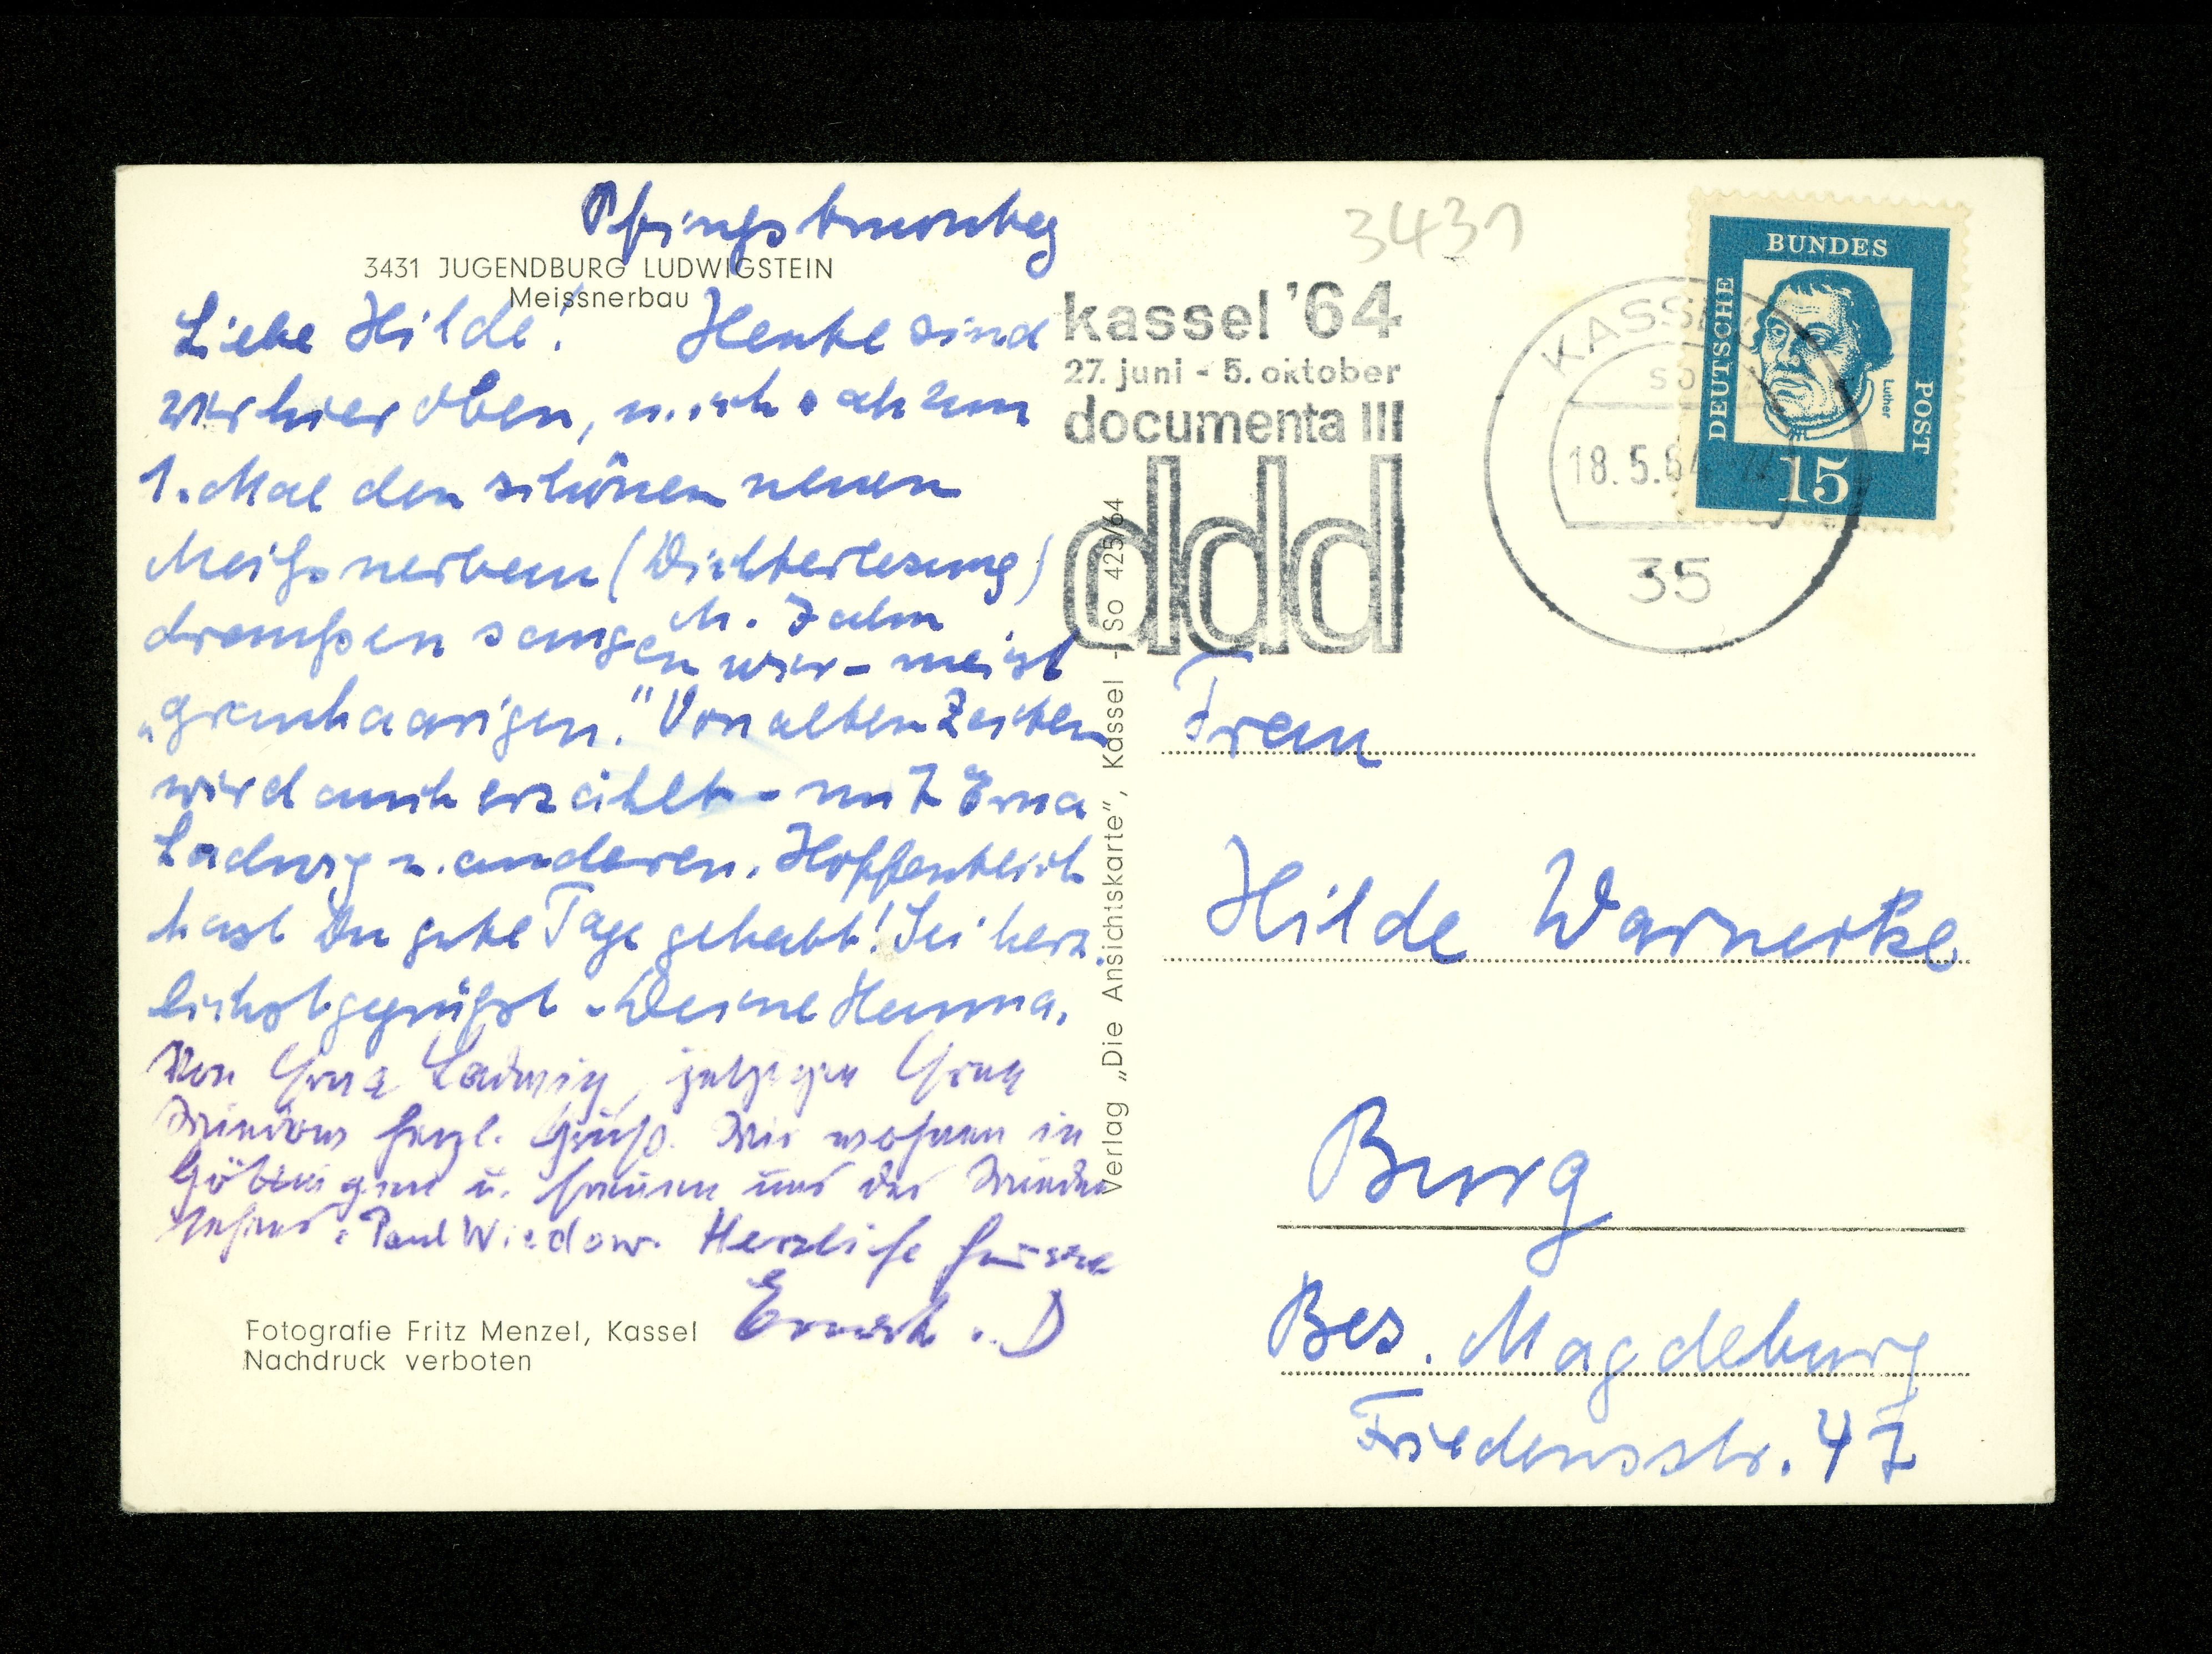 Pfingstmontag
3431 JUGENDBURG LUDWIGSTEIN
Meissnerbau
Liebe Hilde! Heute sind
wir hier oben, u. ich sah zum
1. Mal den schönen neuen
Meißnerbau (Dichterlesung)
M. Jahn
draußen sangen wir - meist
„grauhaarigen." Von alten Zeiten
wird auch erzählt - mit Erna
Ladwig u. anderen. Hoffentlich
hast Du gute Tage gehabt! Sei herz.
lichst gegrüßt - Deine Hanna.
Von Erna Ladwig, jetzigen Erna
herzl. Gruß. Wir wohnen in
Göttingen u. freuen uns des
Paul Wiedow. Herzliche Grüsse
Fotografie Fritz Menzel, Kassel
Nachdruck verboten
Verlag „Die Ansichtskarte", Kassel - So 425/64
3431
kassel '64
27. juni - 5. oktober
documenta III
ddd
KASSEL
18.5.64
35
DEUTSCHE
BUNDES
POST
Luther
15
Frau
Hilde Warnecke
Burg
Bez. Magdeburg
Friedensstr. 47